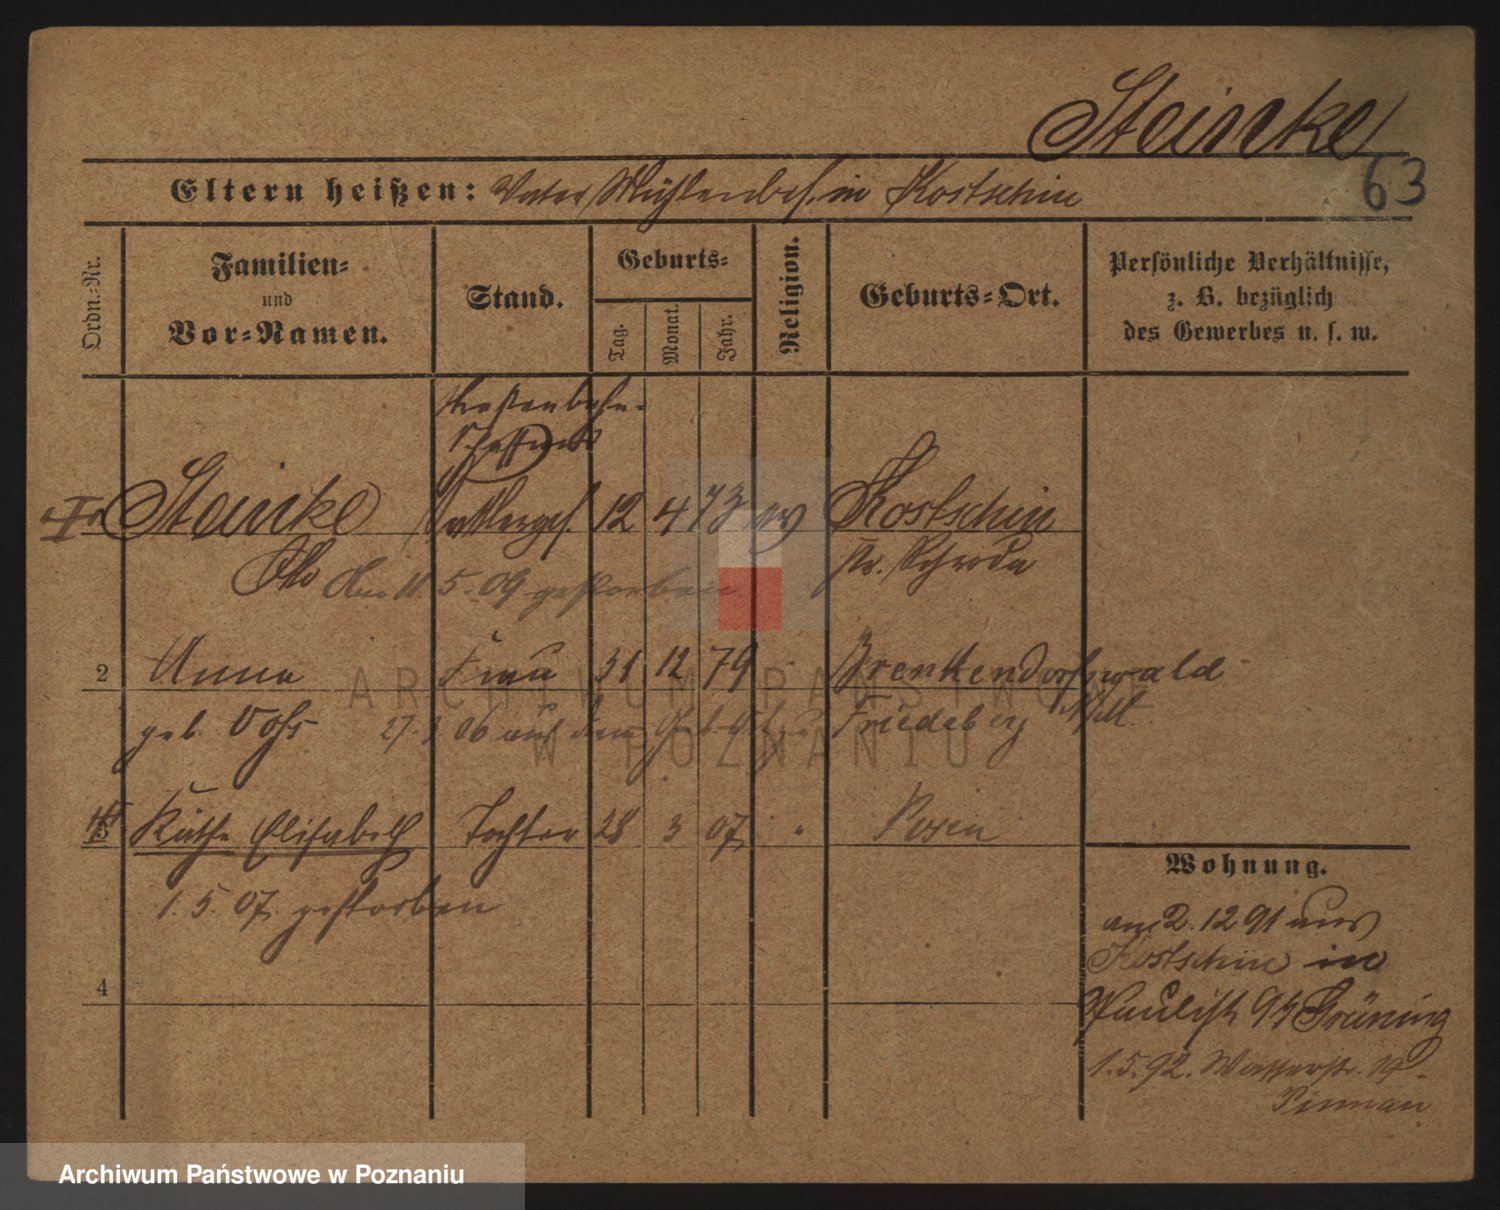 Steinke
63
Eltern heißen: Vater Mühlenbes. in Kostschin
Ordn.-Nr.
Familien-
und
Vor-Namen.
Stand.
Geburts-
Tag.
Monat.
Jahr.
Religion.
Geburts-Ort.
Persönliche Verhältnisse,
z. B. bezüglich
des Gewerbes u. s. w.
Straßenbahn-
Schaffner
Steinke Sattlerges. 12 4 73 ev Kostschin
Otto am 11. 5. 09 gestorben Kr. Schroda
2 Anna Frau 31 12 79 Brenkendorfswald
geb. Vohs 27. 3. 06 aus dem Friedeberg
3 Käthe Elisabeth Tochter 28 3 07 " Posen
1. 5. 07. gestorben
4
Wohnung.
am 2. 12 91 aus
Kostschin in
Paulist 9 b Grüning
1. 5. 92. Wasserstr.
ARCHIWUM PAŃSTWOWE
W POZNANIU
Archiwum Państwowe w Poznaniu